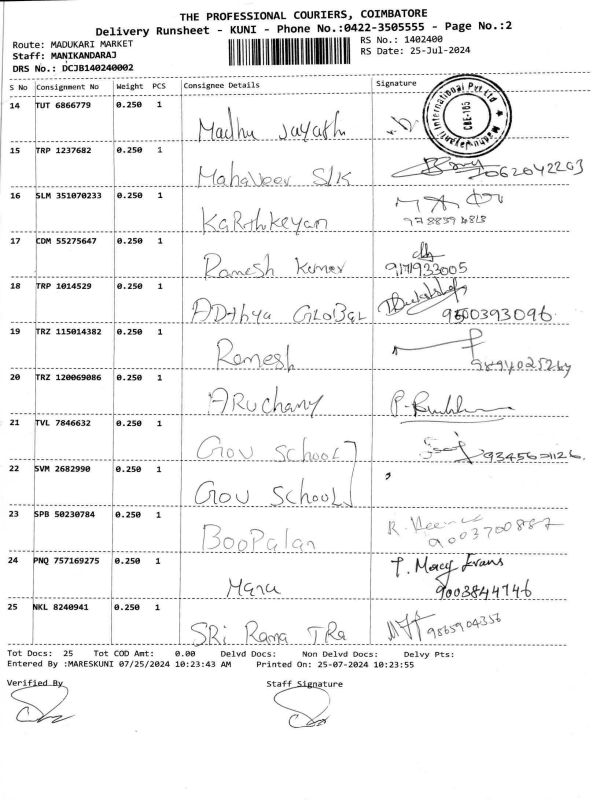 THE PROFESSIONAL COURIERS, COIMBATORE
Delivery Runsheet - KUNI - Phone No.:0422-3505555 - Page No.:2
Route: MADUKARI MARKET
RS No.: 1402400
Staff: MANIKANDARAJ
RS Date: 25-Jul-2024
DRS No.: DCJB140240002
S No Consignment No Weight PCS Consignee Details Signature
14 TUT 6866779 0.250 1
Madhu Jayathi
International Pvt Ltd
CBE-105
15 TRP 1237682 0.250 1
Mahaveer
16 SLM 351070233 0.250 1
Karthikeyan
17 CDM 55275647 0.250 1
Ramesh Kumer
9171933005
18 TRP 1014529 0.250 1
ADthya GLoBaL
9500393096
19 TRZ 115014382 0.250 1
Ramesh
20 TRZ 120069086 0.250 1
ARuchamy
21 TVL 7846632 0.250 1
Gov School
22 SVM 2682990 0.250 1
Gov School
23 SPB 50230784 0.250 1
BooPalan
9003700887
24 PNQ 757169275 0.250 1
T. Macy Evans
9003844746
25 NKL 8240941 0.250 1
SRi Rama TRa
9865904356
Tot Docs: 25 Tot COD Amt: 0.00 Delvd Docs: Non Delvd Docs: Delvy Pts:
Entered By :MARESKUNI 07/25/2024 10:23:43 AM Printed On: 25-07-2024 10:23:55
Verified By Staff Signature